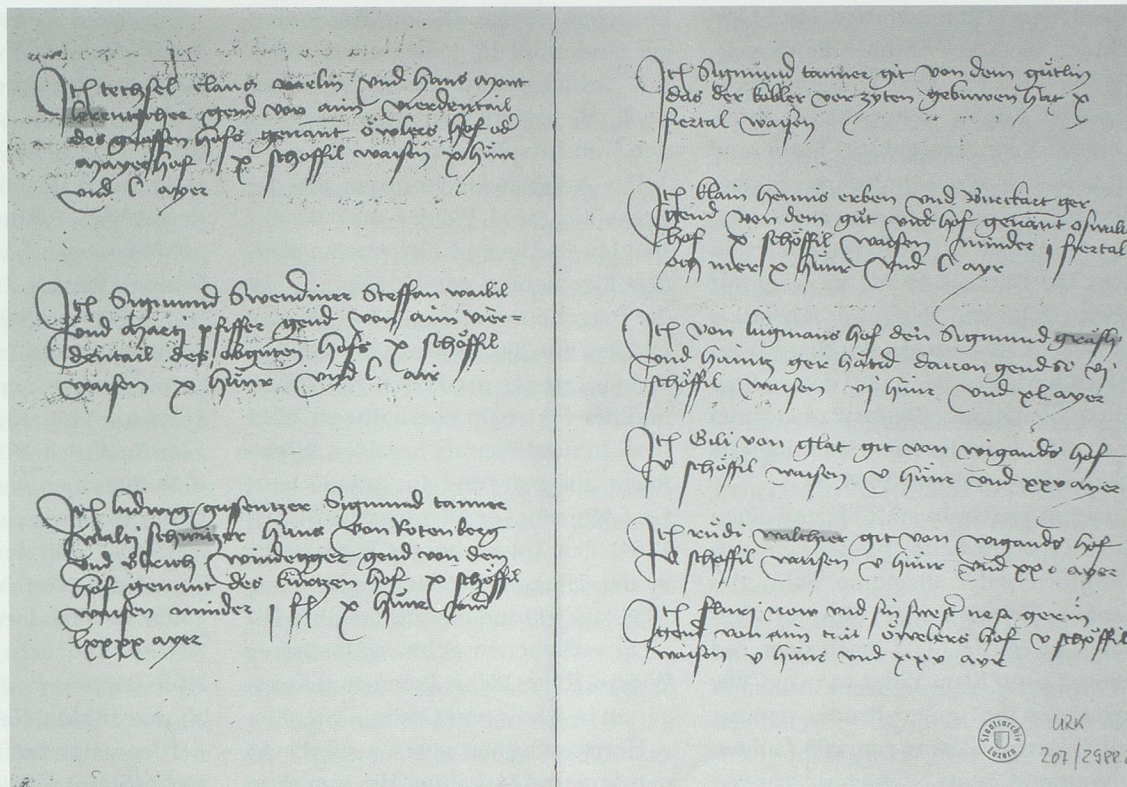 Itē techsel claus welin und hans mont
brentscher gend von aim vierdentail
des grossen hofs genant öwlers hof od
mayerhof x schöffil waisen x hünr
und C ayer
Itē Sigmund Swendiner Steffan waibil
und marti pfiffer gend von aim vier=
dentail des obgnten hofs x schöffil
waisen x hünr und C air
Itē ludwig gussentzer Sigmund tanner
wälti schwitzer hans von Rotenberg
und ülrich windegger gend von dem
hof genant des kurtzen hof x schöffil
waisen minder j fl x hünr und
lxxxx ayer
Itē Sigmund tanner git von dem gütlin
das der kobler vor zyten gebuwen hat x
fiertal waisen
Itē klain hennis erben und Burckart ger
gend von dem güt und hof genant oswalt
hof x schöffil waisen minder j fiertal
och mer x hünr und C ayr
Itē von lugmans hof den Sigmund gräflj
und haintz ger händ davon gend si vj
schöffil waisen vj hünr und xl ayer
Itē Bili von glat git von wigands hof
v schöffil waisen v hünr und xxv ayer
Itē rüdi waltzer git von wigands hof
v schöffil waisen v hünr und xxv ayer
Itē now und sin swest gerin
gend von aim tail öwelers hof v schöffil
waisen v hünr und xxv ayr
Staatsarchiv
Luzern
URK
207/2988